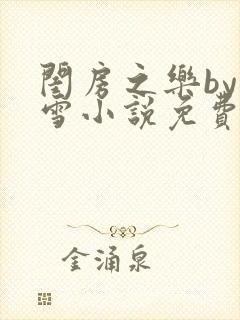 閨房之樂by
雪小説免費
金涌泉